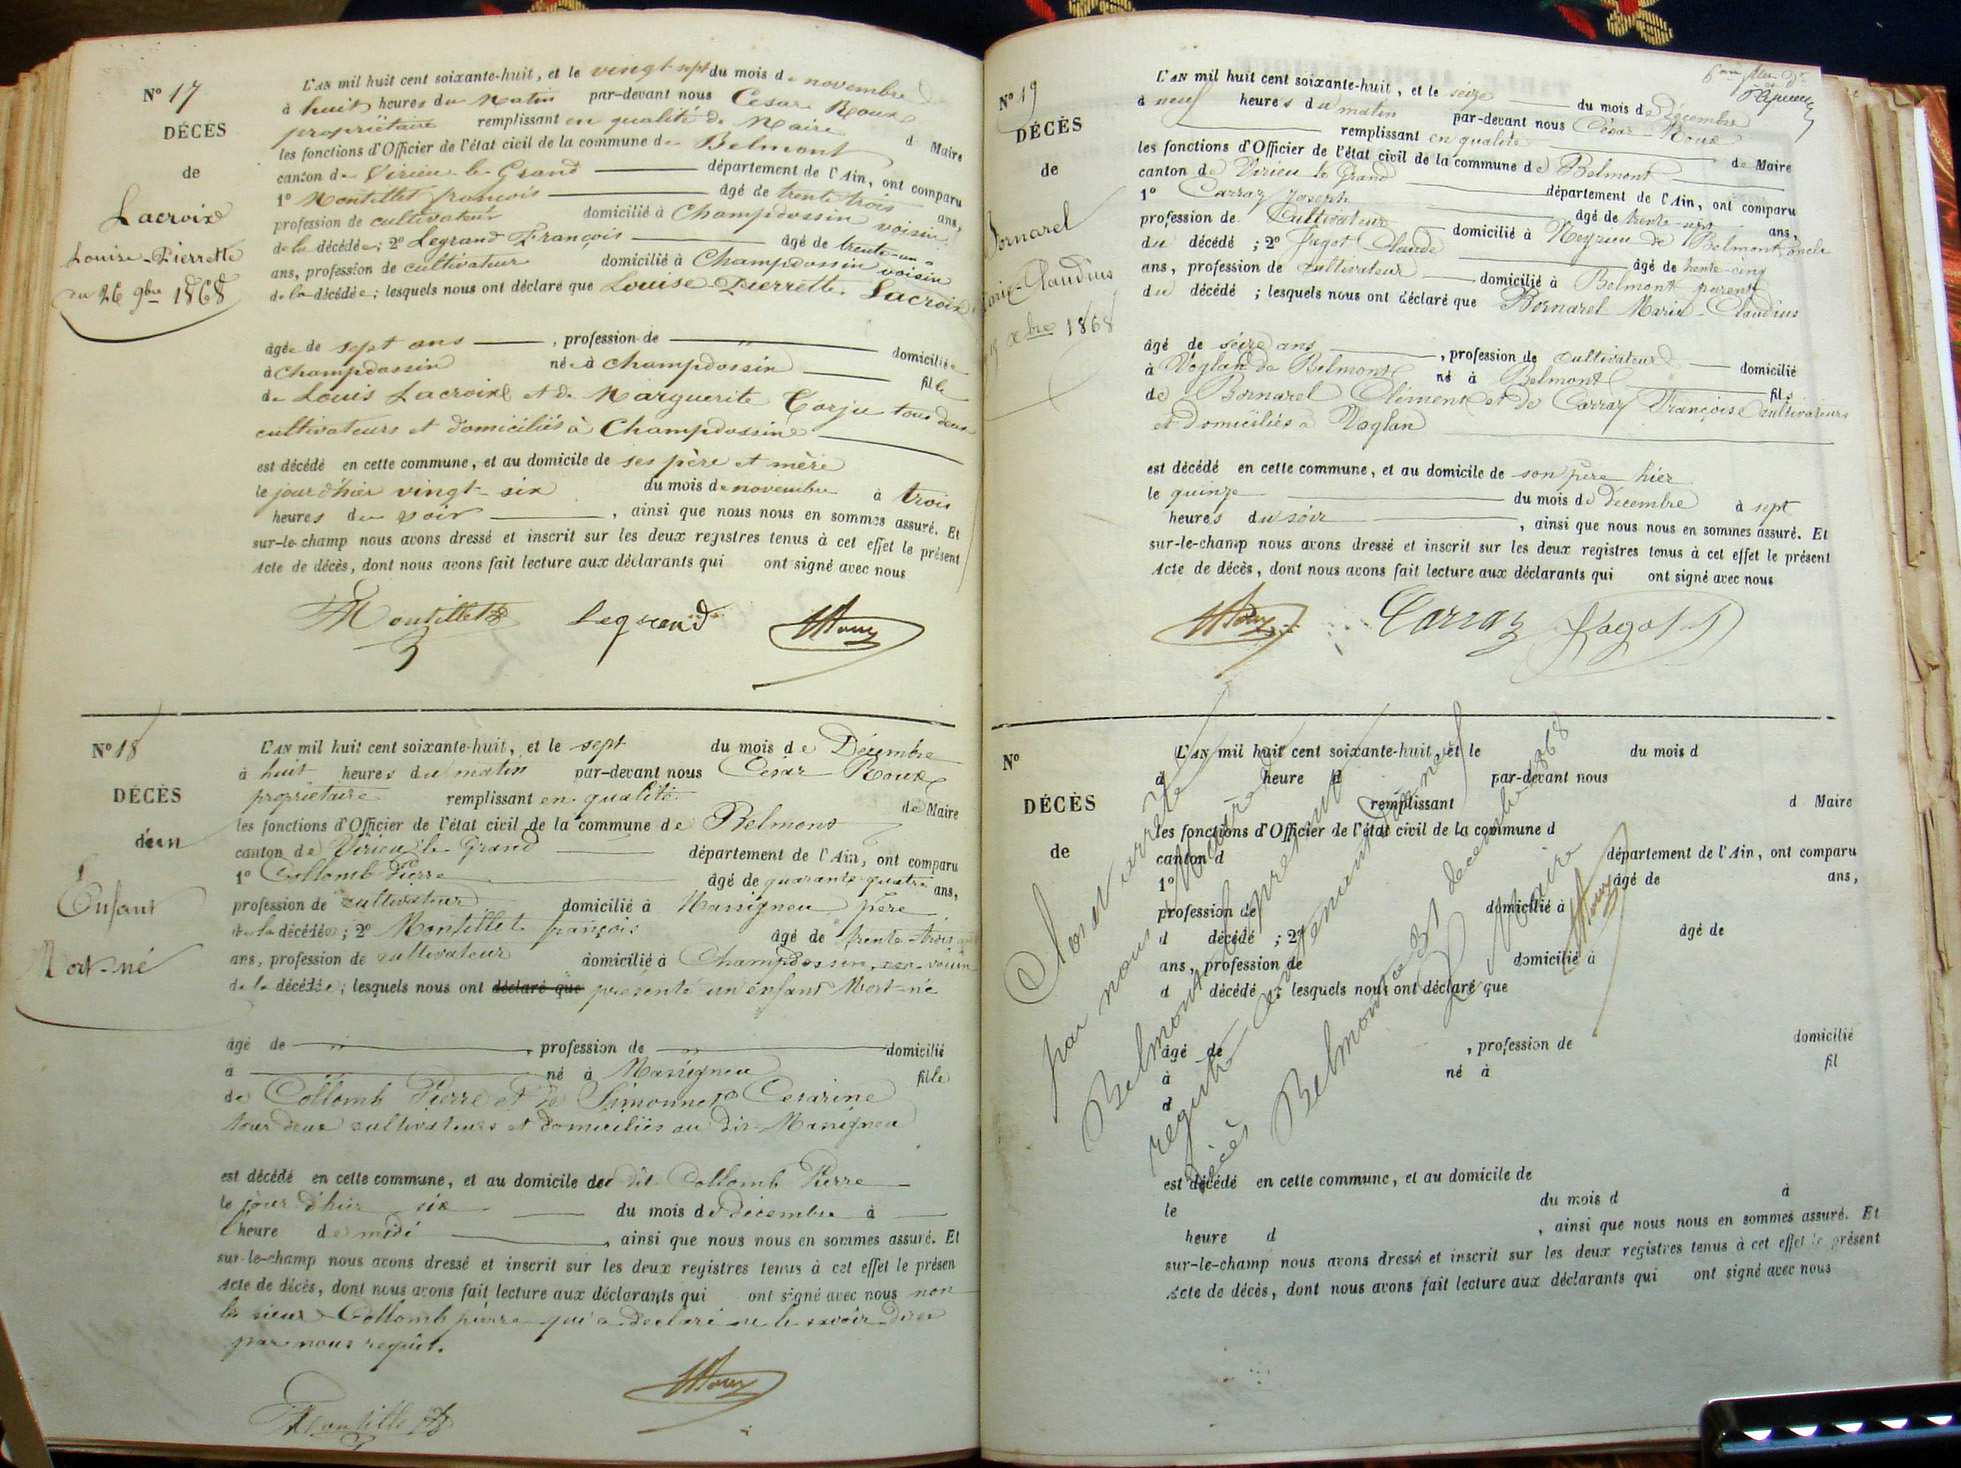 N° 17
DÉCÈS
de
Lacroix
Louise-Pierrette
du 26 9bre 1868
L'AN mil huit cent soixante-huit, et le vingt-sept du mois de novembre
à huit heures du matin par-devant nous César Roux
propriétaire remplissant en qualité de Maire d Maire
les fonctions d'Officier de l'état civil de la commune de Belmont
canton de Virieu le Grand département de l'Ain, ont comparu
1° Montillet françois âgé de trente trois ans,
profession de cultivateur domicilié à Champdossin voisin
de la décédée; 2° Legrand François âgé de trente-un
ans, profession de cultivateur domicilié à Champdossin voisin
de la décédée; lesquels nous ont déclaré que Louise-Pierrette Lacroix
âgée de sept ans , profession de domiciliée
à Champdossin née à Champdossin fille
de Louis Lacroix et de Marguerite Gorju tous deux
cultivateurs et domiciliés à Champdossin
est décédé en cette commune, et au domicile de ses père et mère
le jour d'hier vingt-six du mois de novembre à trois
heures du soir , ainsi que nous nous en sommes assuré. Et
sur-le-champ nous avons dressé et inscrit sur les deux registres tenus à cet effet le présent
Acte de décès, dont nous avons fait lecture aux déclarants qui ont signé avec nous
Montillet Legrand Roux
N° 18
DÉCÈS
d'un
Enfant
Mort-né
L'AN mil huit cent soixante-huit, et le sept du mois de Décembre
à huit heures du matin par-devant nous César Roux
propriétaire remplissant en qualité de Maire
les fonctions d'Officier de l'état civil de la commune de Belmont
canton de Virieu-le-Grand département de l'Ain, ont comparu
1° Collomb Pierre âgé de quarante-quatre ans,
profession de cultivateur domicilié à Massigneu père
de la décédée; 2° Montillet françois âgé de trente-trois
ans, profession de cultivateur domicilié à Champdossin, voisin
de la décédée; lesquels nous ont déclaré que présenté un enfant Mort-né
âgé de , profession de domicilié
à né à Massigneu fille
de Collomb Pierre et de Simonnet Cesarine
tous deux cultivateurs et domiciliés au dit Massigneu
est décédé en cette commune, et au domicile du dit Collomb Pierre
le jour d'hier six du mois de décembre à
l'heure de midi , ainsi que nous nous en sommes assuré. Et
sur-le-champ nous avons dressé et inscrit sur les deux registres tenus à cet effet le présen
Acte de décès, dont nous avons fait lecture aux déclarants qui ont signé avec nous non
le sieur Collomb pierre qui a déclaré ne le savoir de ce
par nous requit.
Montillet Roux
N° 19
DÉCÈS
de
Bornarel
Marie-Claudius
15 xbre 1868
L'AN mil huit cent soixante-huit, et le seize du mois de décembre
à neuf heures du matin par-devant nous César Roux
remplissant en qualité de Maire
les fonctions d'Officier de l'état civil de la commune de Belmont
canton de Virieu le Grand département de l'Ain, ont comparu
1° Carraz Joseph âgé de trente-un ans,
profession de Cultivateur domicilié à Neyrieu de Belmont oncle
du décédé ; 2° Jugot Claude âgé de trente-cinq
ans, profession de cultivateur domicilié à Belmont parent
du décédé ; lesquels nous ont déclaré que Bornarel Marie-Claudius
âgé de seize ans , profession de cultivateur domicilié
à Voglan de Belmont né à Belmont fils
de Bornarel Clément et de Carraz Françoise cultivateurs
et domiciliés à Voglan
est décédé en cette commune, et au domicile de son père hier
le quinze du mois de décembre à sept
heures du soir , ainsi que nous nous en sommes assuré. Et
sur-le-champ nous avons dressé et inscrit sur les deux registres tenus à cet effet le présent
Acte de décès, dont nous avons fait lecture aux déclarants qui ont signé avec nous
Roux Carraz Jugot
N°
DÉCÈS
de
L'AN mil huit cent soixante-huit, et le du mois d
à heure d par-devant nous
remplissant d Maire
les fonctions d'Officier de l'état civil de la commune d
canton d département de l'Ain, ont comparu
1° âgé de ans,
profession de domicilié à
d décédé ; 2° âgé de
ans, profession de domicilié à
d décédé ; lesquels nous ont déclaré que
âgé de , profession de domicilié
à né à fil
d
est décédé en cette commune, et au domicile de
le du mois d à
heure d , ainsi que nous nous en sommes assuré. Et
sur-le-champ nous avons dressé et inscrit sur les deux registres tenus à cet effet le présent
Acte de décès, dont nous avons fait lecture aux déclarants qui ont signé avec nous
Clos et arrêté
par nous Maire de
Belmont le présent
registre contenant dix neuf
décès Belmont ce 31 décembre 1868
Le Maire
Roux